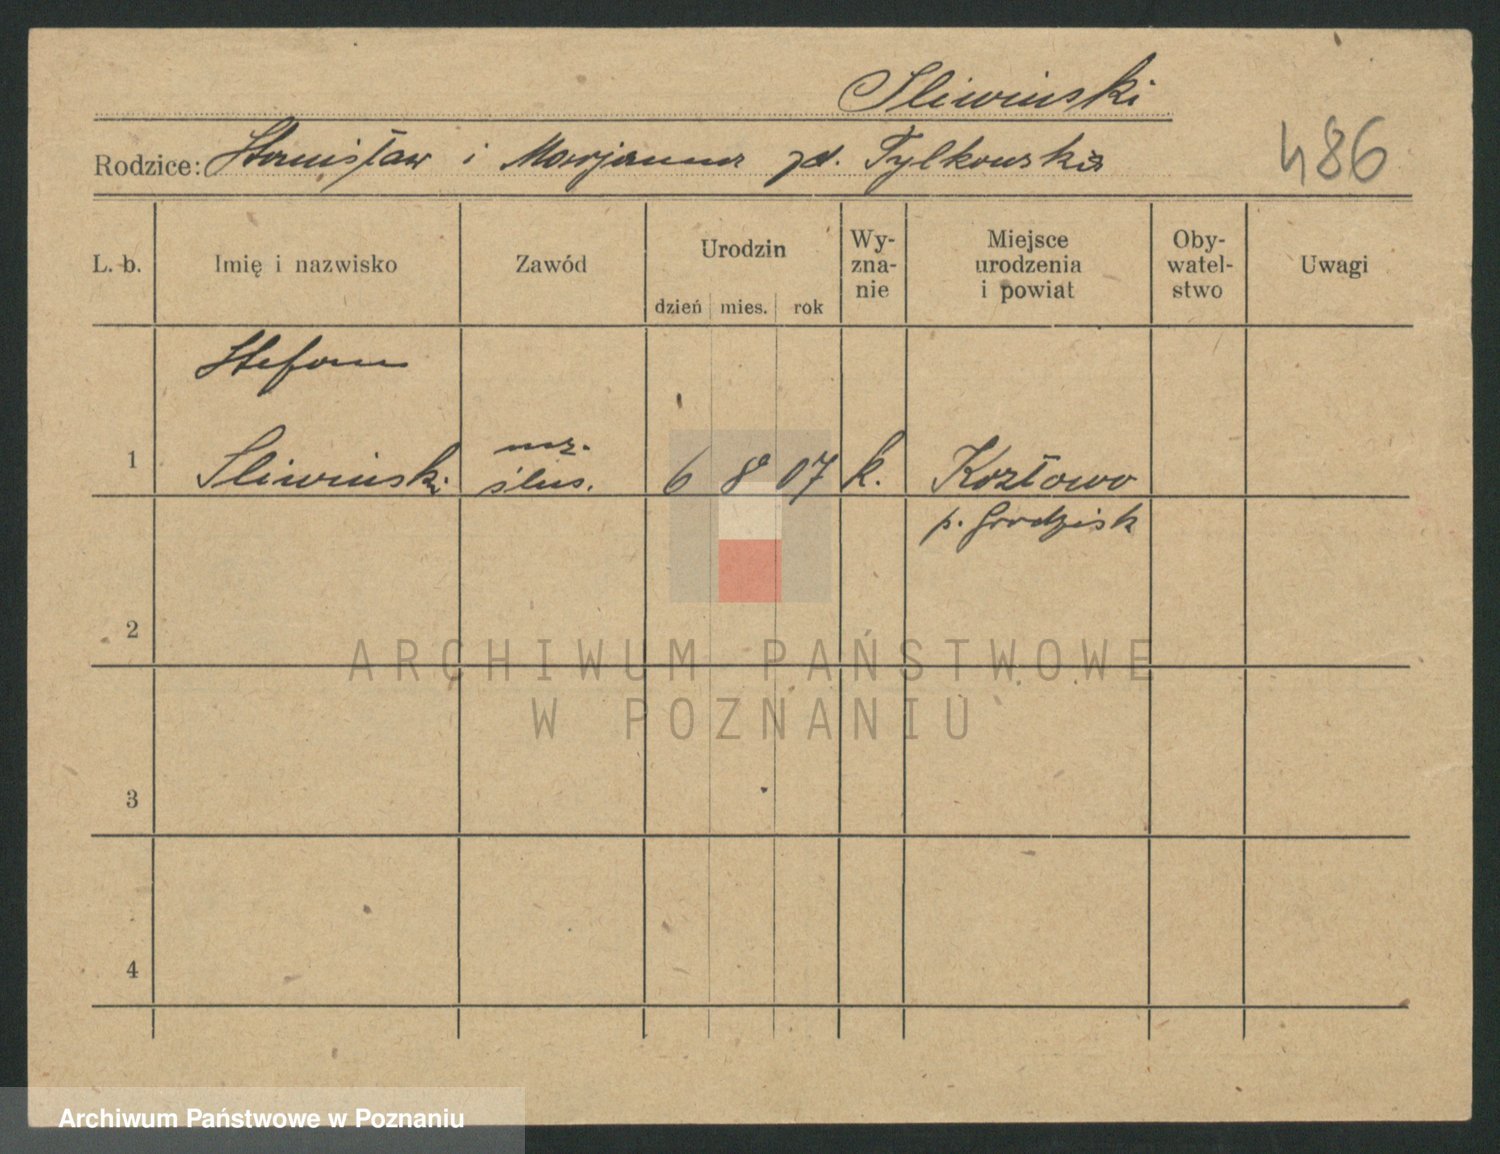 Sliwinski
Rodzice: Stanisław i Marjanna zd. Tylkowska
486
L. b.
Imię i nazwisko
Zawód
Urodzin
dzień mies. rok
Wy-
zna-
nie
Miejsce
urodzenia
i powiat
Oby-
watel-
stwo
Uwagi
Stefan
1 Sliwinski
ślus.
6 8 07 k. Kozłowo
p. Grodzisk
2
ARCHIWUM PAŃSTWOWE
W POZNANIU
3
4
Archiwum Państwowe w Poznaniu